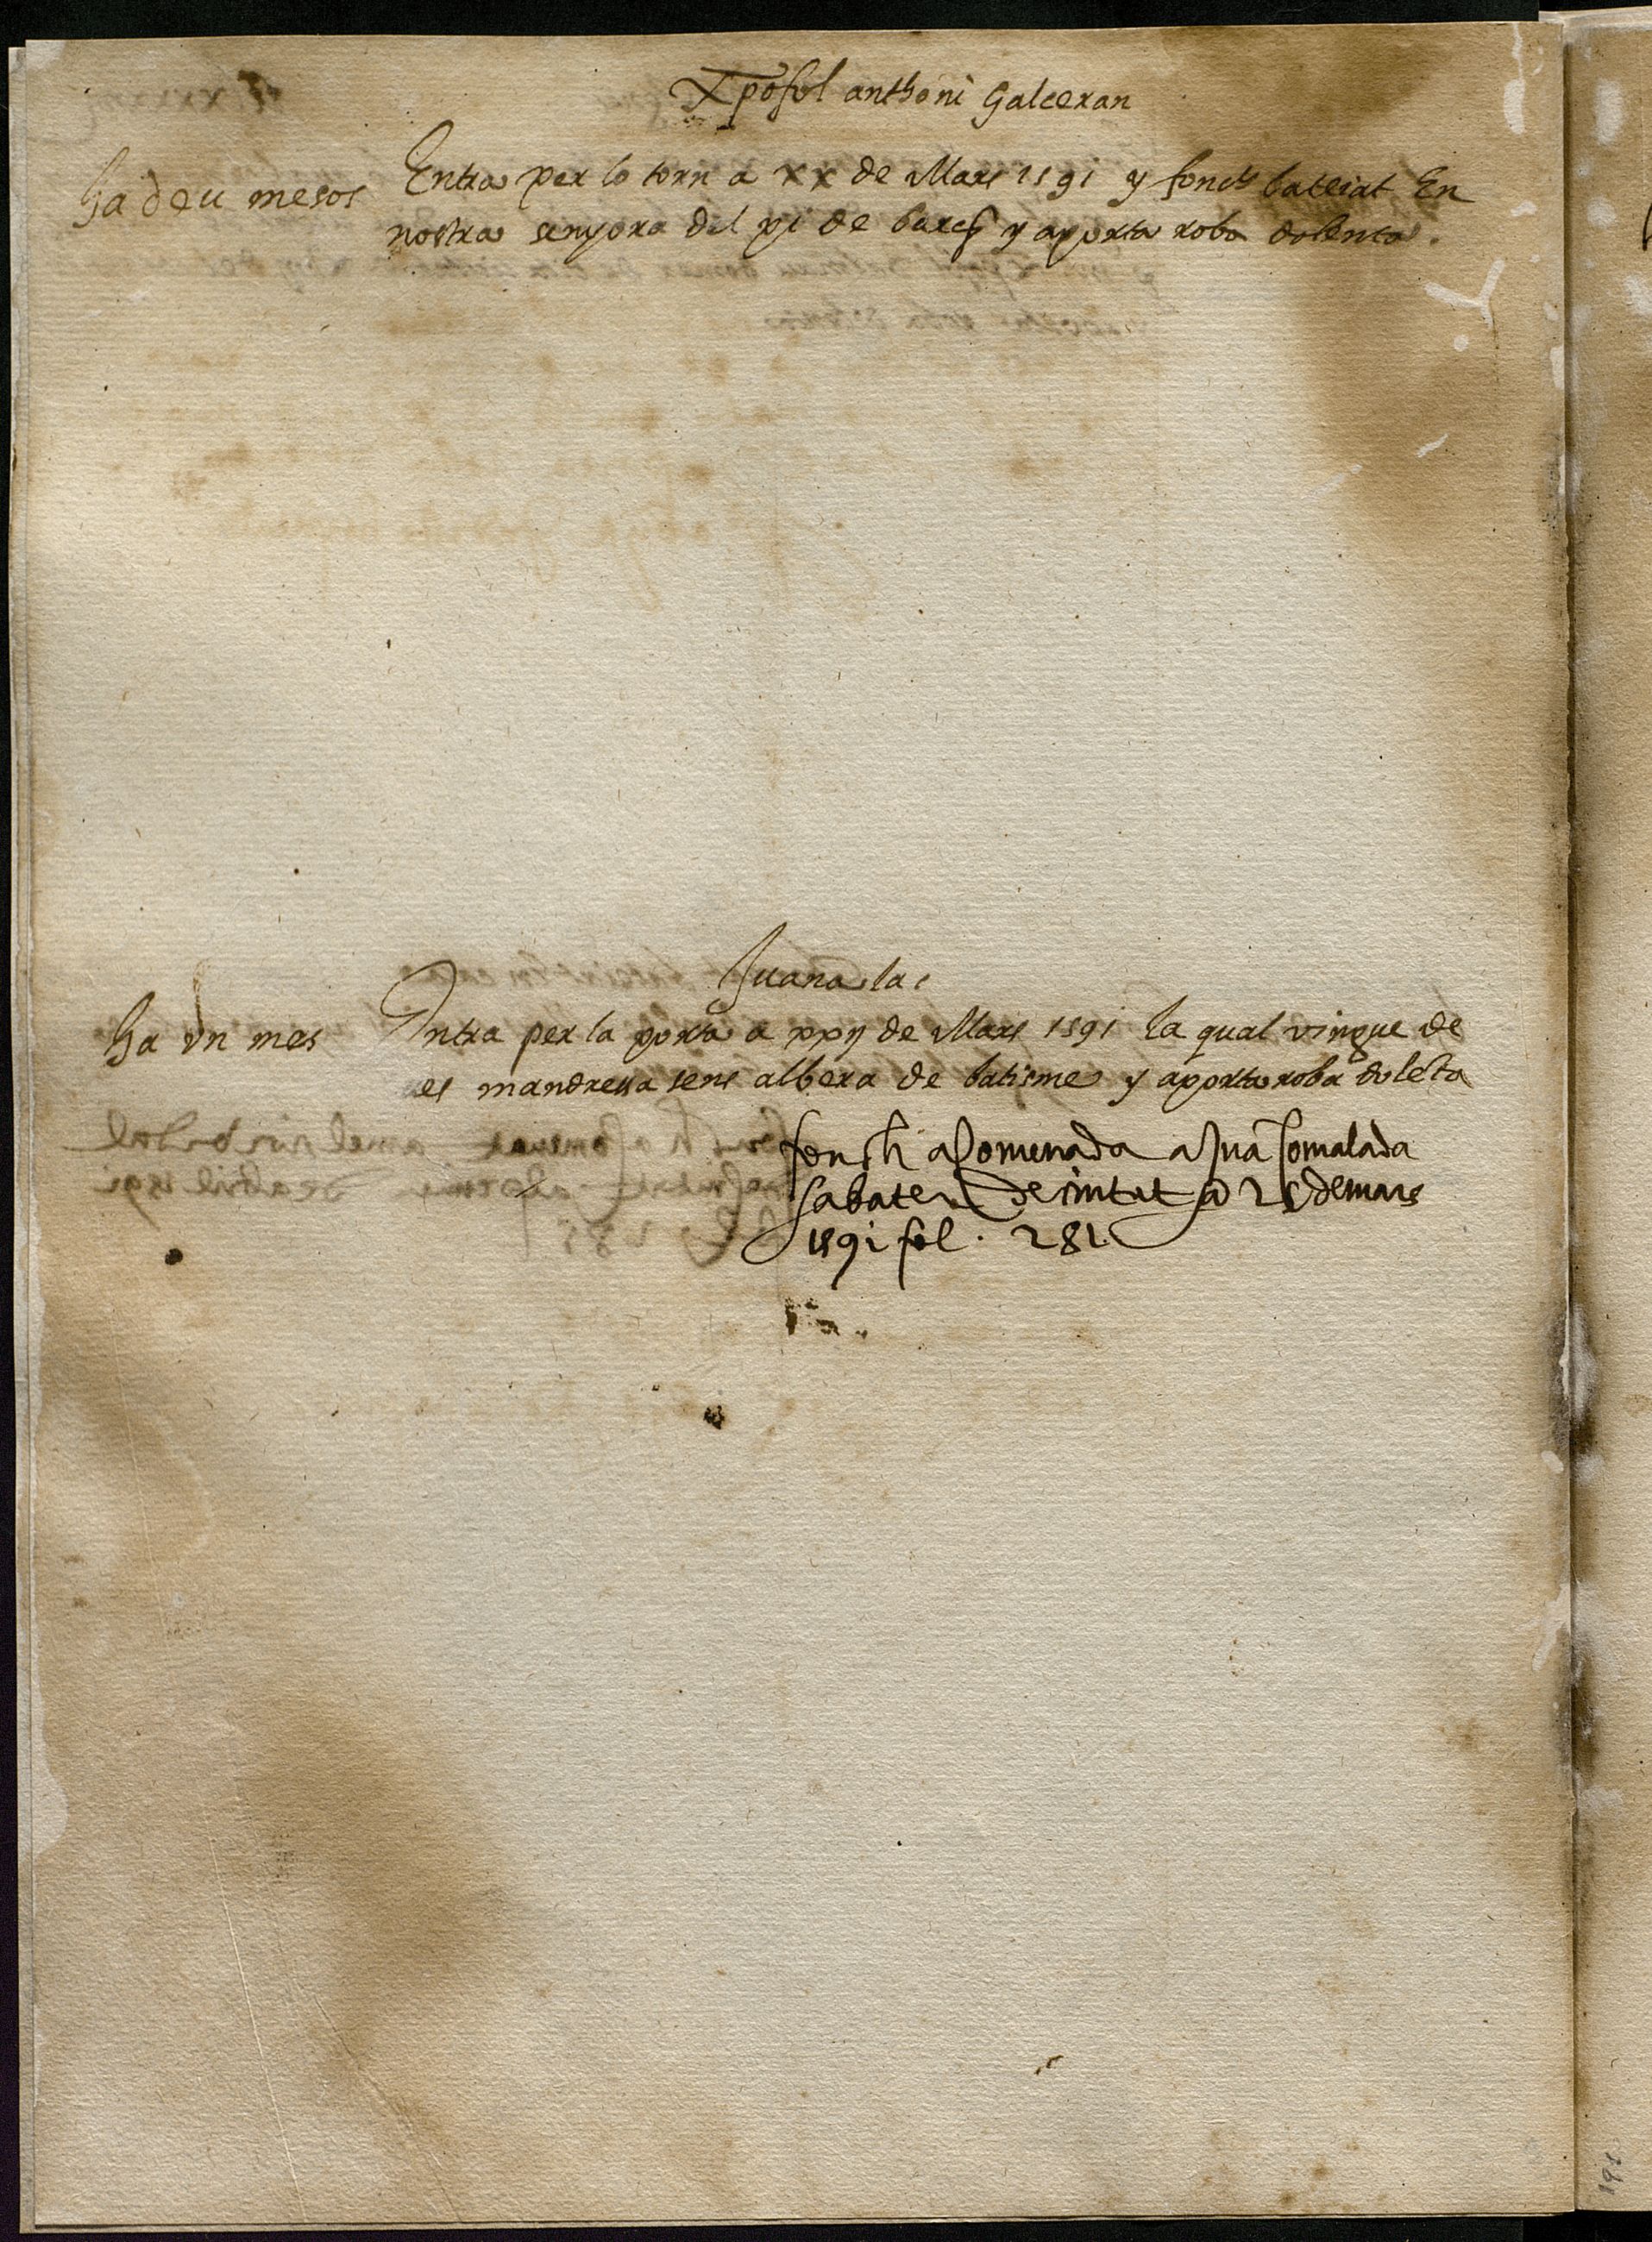 Xpofol anthoni Galceran
ha deu mesos
Entra per lo torn a xx de Mars 1591 y fonch batteiat En
nostra senyora del pi de barcª y aporta roba dolenta.
Juana la
ha vn mes
Entra per la porta a xxij de Mars 1591 la qual vingue de
mandresa sens albera de batisme y aporta roba doleta
fonch acomenada a Juā comalada
sabater de ciutat a 25 de mars
1591 fol. 281